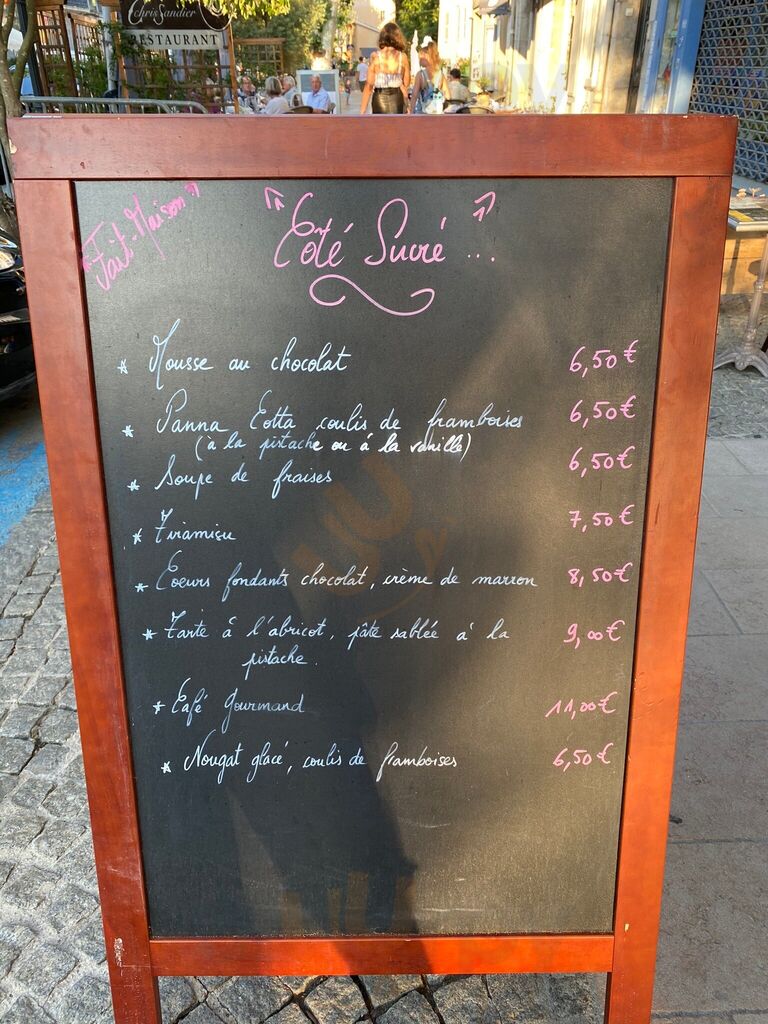 chrisSandier
RESTAURANT
"Fait-Maison"
"Côté Sucré ..."
* Mousse au chocolat 6,50€
* Panna Cotta coulis de framboises 6,50€
(à la pistache ou à la vanille)
* Soupe de fraises 6,50€
* Tiramisu 7,50€
* Coeurs fondants chocolat, crème de marron 8,50€
* Tarte à l'abricot, pâte sablée à la 9,00€
pistache.
* Café Gourmand 11,00€
* Nougat glacé, coulis de framboises 6,50€